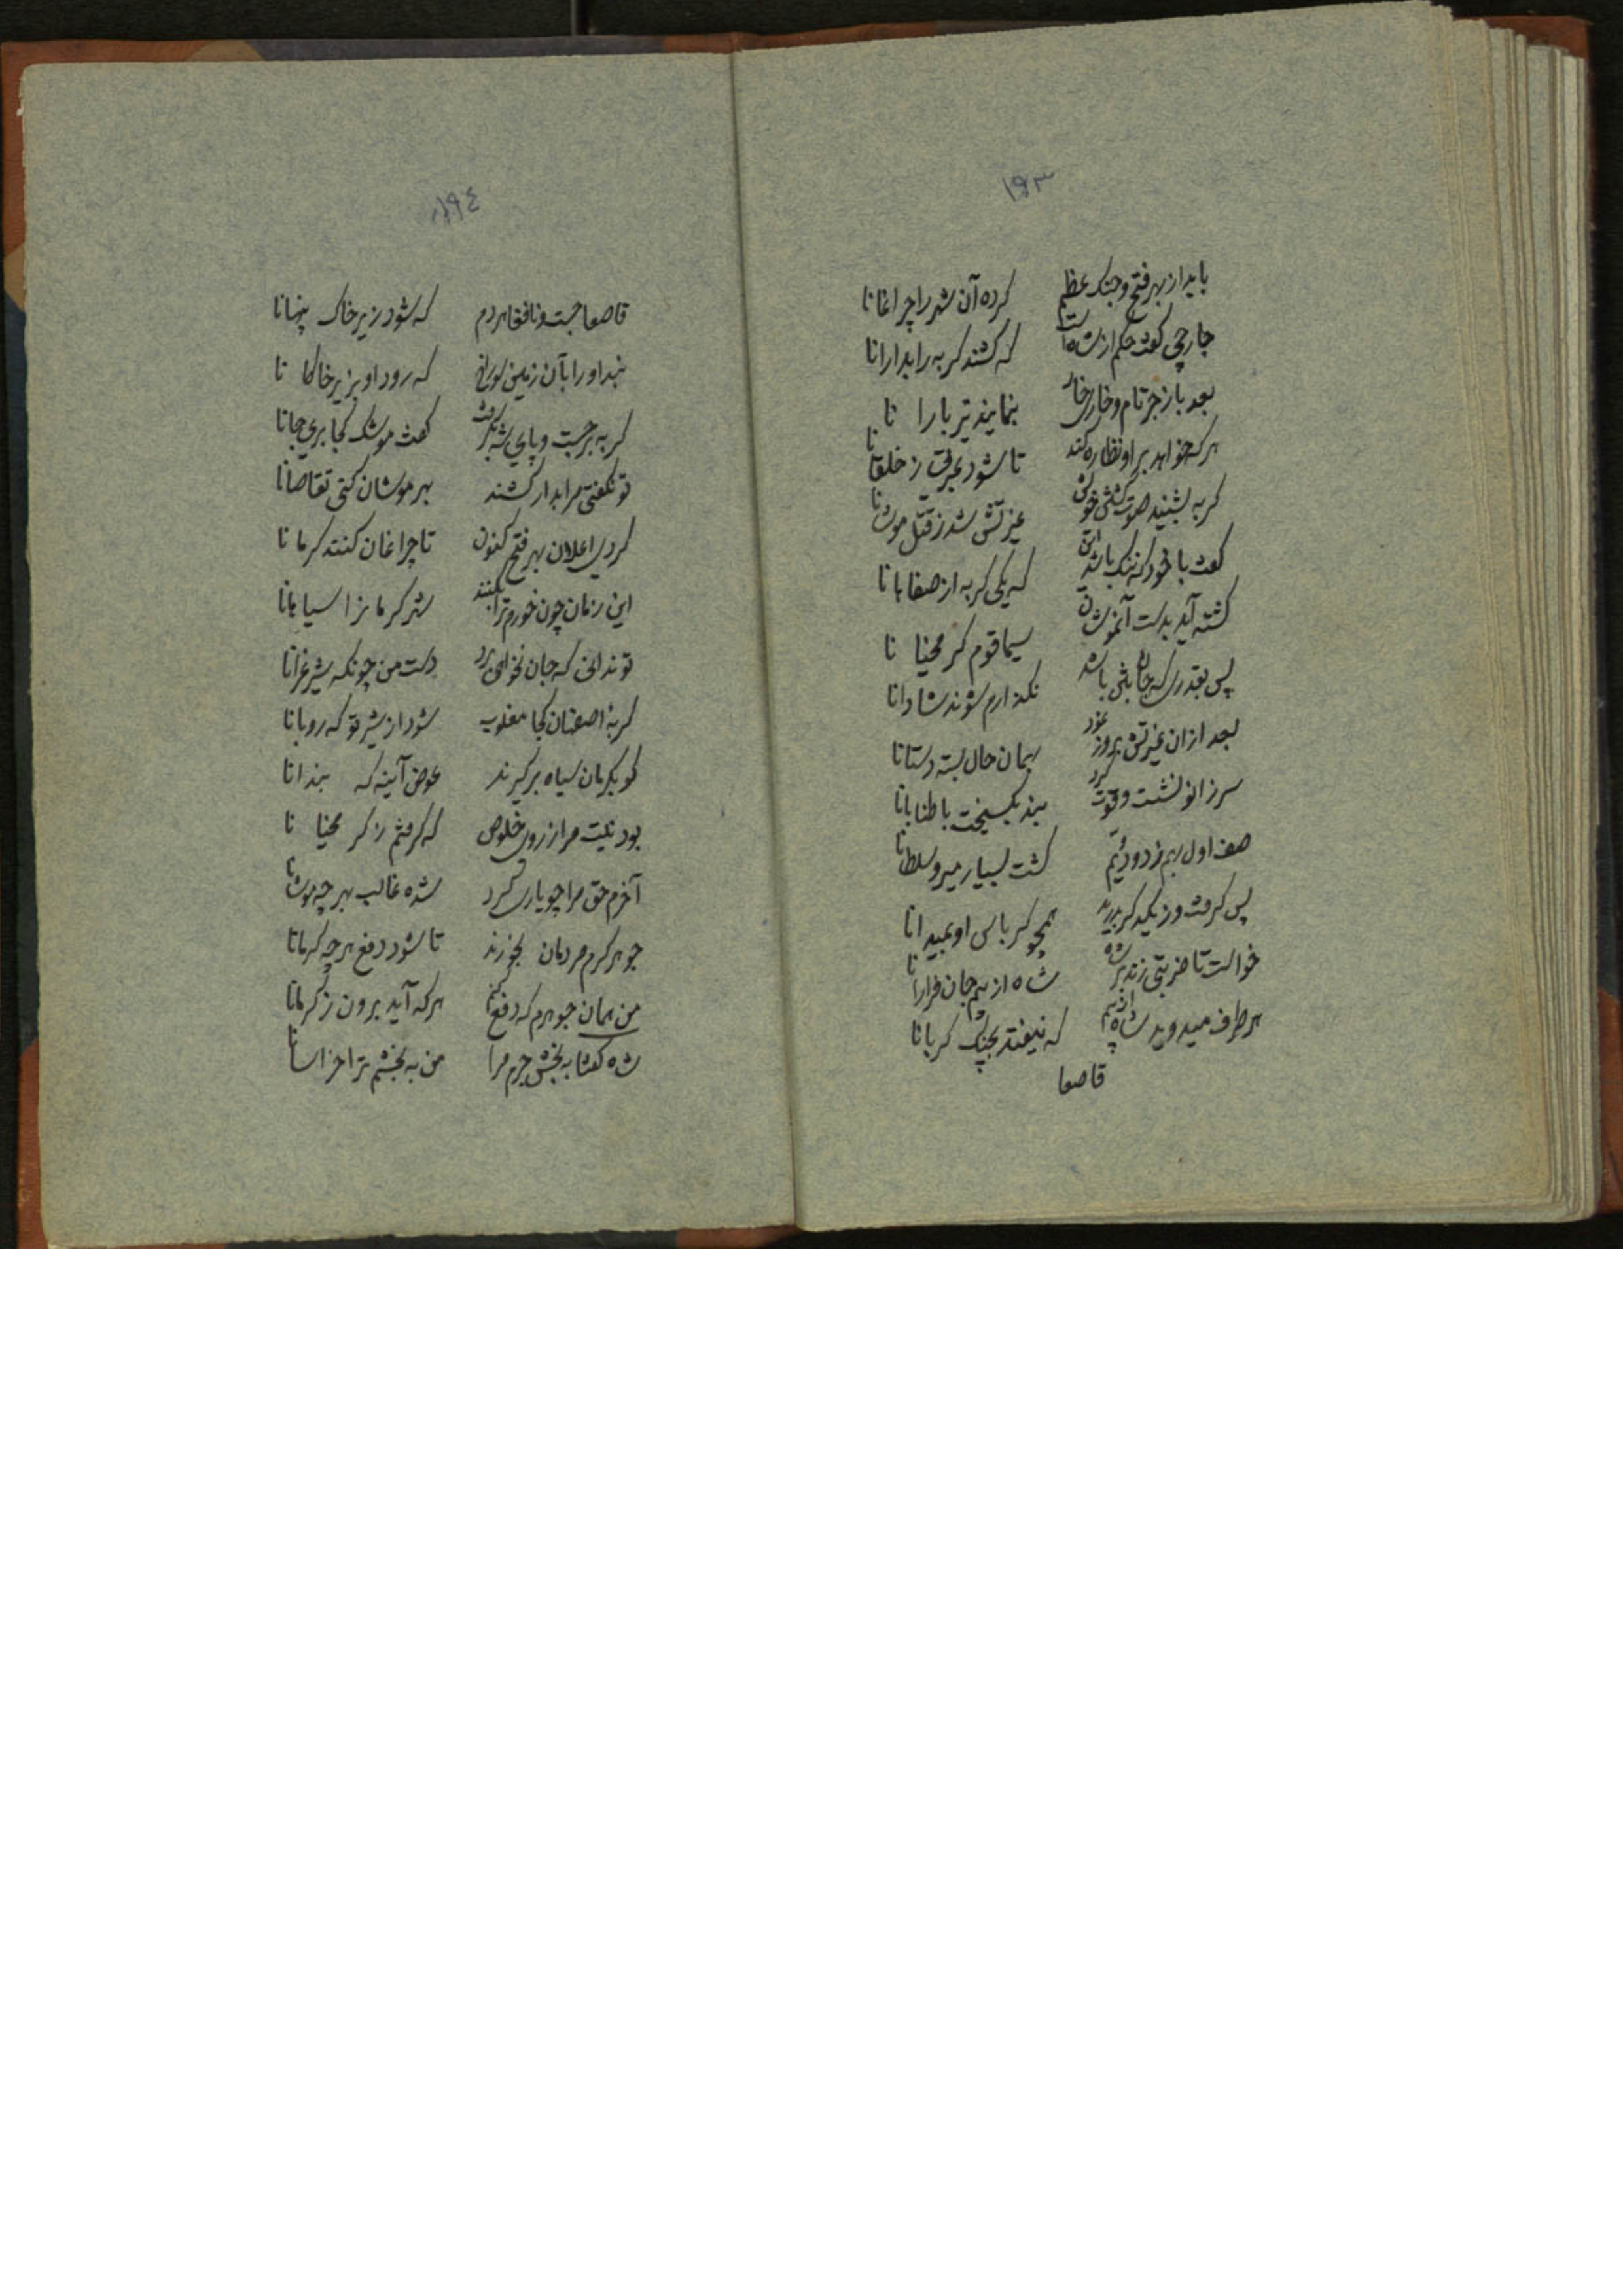 ١٩٣
باید از بهر فتح و جنک عظیم کرده آن شهر را چراغانا
جارچی کفت حکم از شاه است که کشند کربه را بدارانا
بعد باز جرتام و خار بنمایند تیر بارا نا
هرکه خواهد بر او نظاره کند تا شود عبرتی ز خلقانا
کربه بشنید صوت غیرتش شد ز قتل موشانا
کفت با خود که ننک باشد این که یکی کربه از صفاهانا
کشته آید بدست آنموشان سیما قوم کر محنیا نا
پس بقدری که جان باشد نکذارم شوند شادانا
بعد ازان غیرتش بروز نمود بهمان حال بسته دستانا
سر زانو نشست و قوت کرد بند بکسیخت با طنابانا
صف اول بهم زد و دویّم کشت بسیار میر و سلطانا
پس کرفت و ز یکدکر بدرید همچو کرباس او بمیدانا
خواست تا ضربتی زند بر شاه شاه از بیم جان فرارانا
هر طرف میدوید شاه از بیم که نیفتد بچنک کربانا
قاصعا
١٩٤
قاصعا جست و نافقا هر دم که شود زیر خاک پنهانا
بند او را بآن زمین که رود او بزیر خاکا نا
کربه برجست و پای شه بکرفت کفت موشک کجا بری جانا
تو نکفتی مرا بدار کشند بهر موشان کنی تقاصانا
کردی اعلان بهر فتح کنون تا چراغان کنند کرما نا
این زمان چون خورم ترا بکنند شهر کرما نرا سیا هانا
تو ندانی که جان نخواهی برد دست من چونکه شیر غرانا
کربهٔ اصفهان کجا مغلوب شود از شیر تو که روبانا
کو بکرمان سیاه برکیرند عوض آینه که بندانا
بود نیت مرا ز روی خلوص که کرفتم ز کر محنیا نا
آخرم حق مرا چو یاری کرد شده غالب بهر چه موشانا
جوهر کرم مردمان بخورند تا شود دفع هر چه کرمانا
من همان جوهرم که دفع کنم هر که آید برون ز کرمانا
شاه کفتا به بخش جرم مرا من به بخشم ترا خراسانا